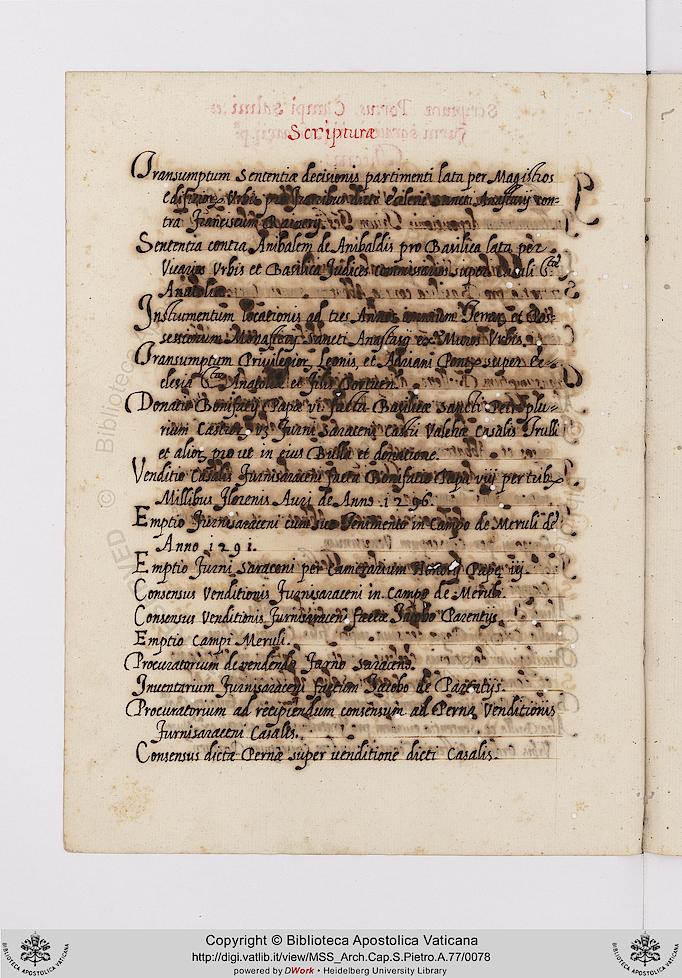 Scripturæ
Transumptum Sententiæ decisionis partimenti lata per Magistros
edifitior Urbis pro fratribus dictæ Ecclesie sancti Anastasij con-
tra Franciscum
Sententia contra Anibalem de Anibaldis pro Basilica lata per
Vicarios Urbis et Basilica Judices commissarios super Casali S.tæ
Anatoliæ
Instrumentum locationis ad tres Annos omnium Terrar. et Pos-
sessionum Monasterij Sancti Anastasij ex Muros Urbis.
Transumptum Privilegior. Leonis, et Adriani Pont. super Ec-
clesia S.tæ Anatoliæ et
Donatio Bonifacij Papæ vi facta Basilicæ Sancti Petri plu-
rium Castror. vz Furni Saraceni Castri Valchæ Casalis Trulli
et alior. pro ut in eius Bulla et donatione.
Venditio Casalis Furnisaraceni facta Bonifatio Papa viij per tribx
Millibus Florenis Auri de Anno. 1296.
Emptio Furnisaraceni cum suo Tenimento in Campo de Meruli de
Anno 1291.
Emptio Furni Saraceni per Camerarium Honorij Papæ iiij.
Consensus Venditionis Furnisaraceni in Campo de Meruli.
Consensus Venditionis Furnisaraceni factæ Jacobo Parentijs.
Emptio Campi Meruli.
Procuratorium de vendendo Furno Saraceno.
Inventarium Furnisaraceni factum Jacobo de Parentijs.
Procuratorium ad recipiendum consensum ad Perna Venditionis
Furnisaraceni Casalis.
Consensus dictæ Pernæ super venditione dicti Casalis.
Copyright © Biblioteca Apostolica Vaticana
http://digi.vatlib.it/view/MSS_Arch.Cap.S.Pietro.A.77/0078
powered by DWork • Heidelberg University Library
BIBLIOTECA APOSTOLICA VATICANA
BIBLIOTECA APOSTOLICA VATICANA